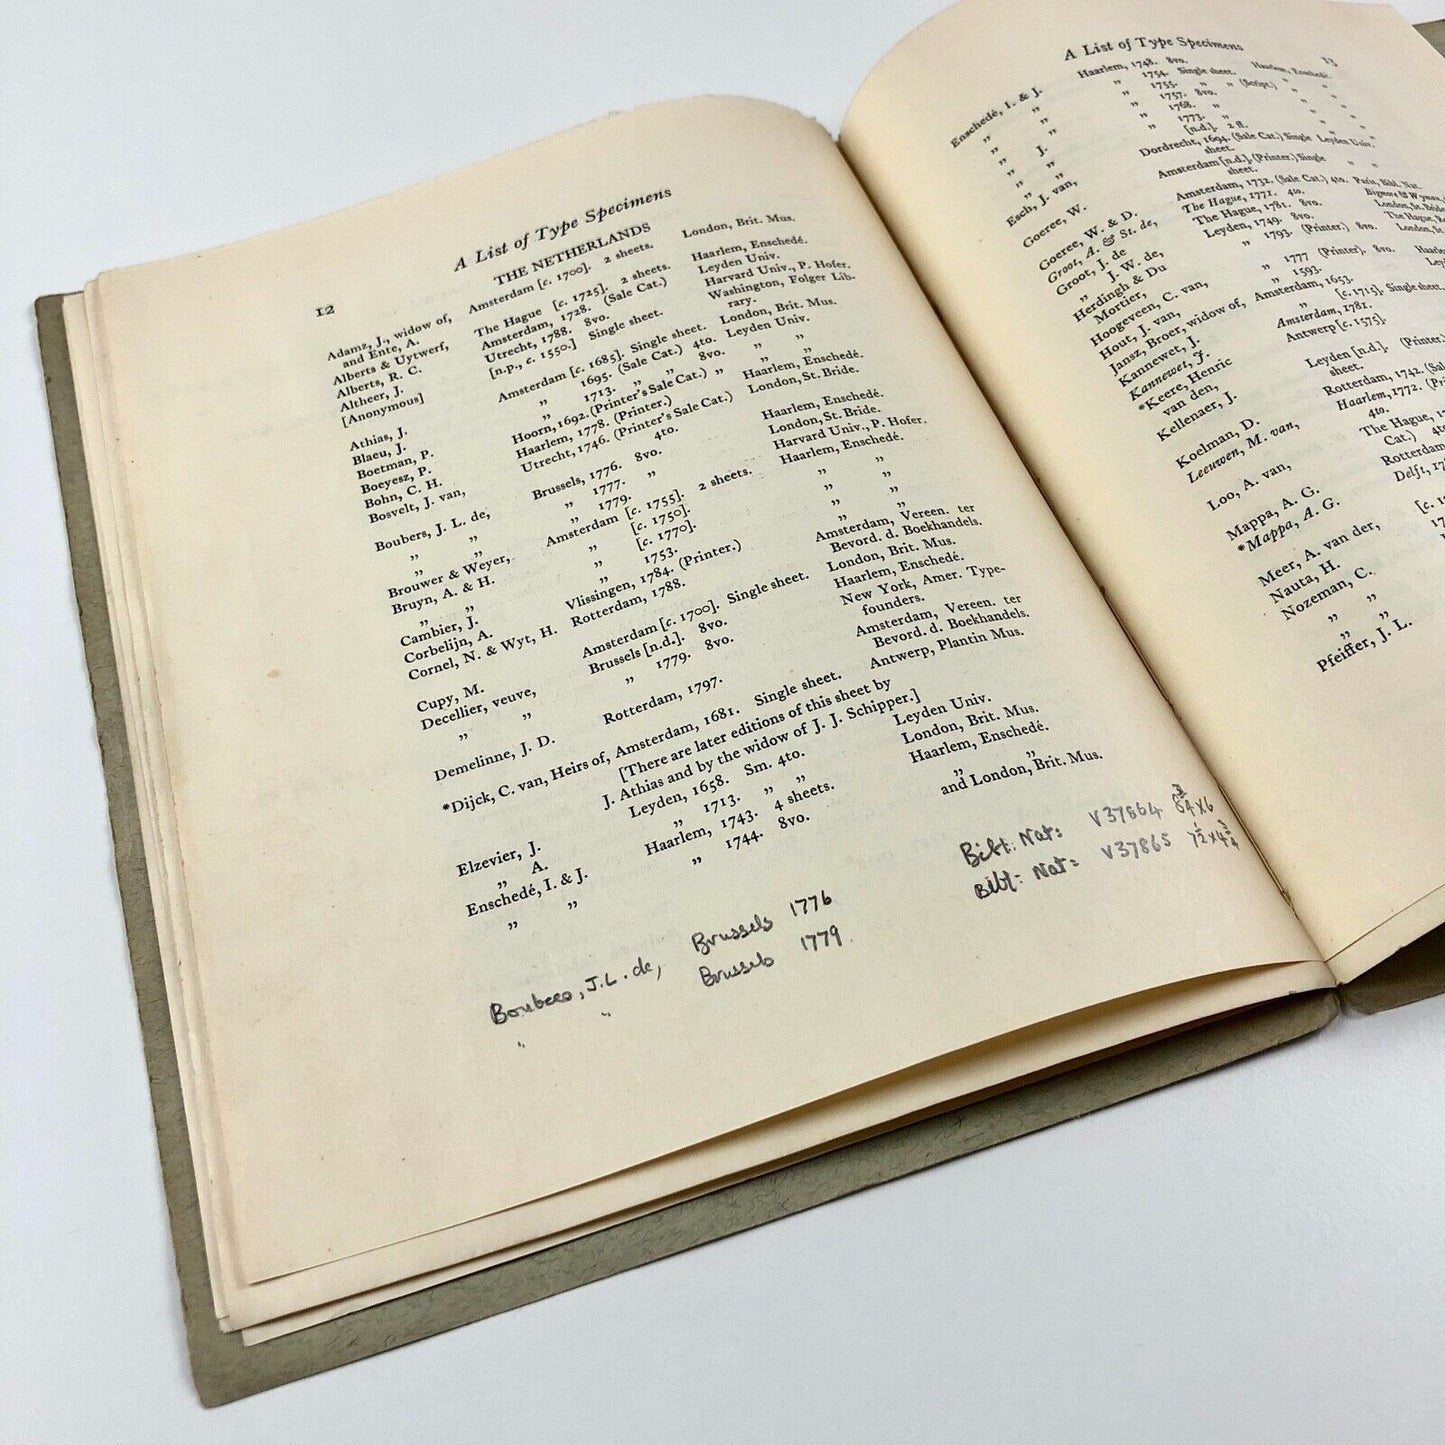 12
A List of Type Specimens
THE NETHERLANDS
Adamz, J., widow of, and Ente, A. Amsterdam [c. 1700]. 2 sheets. London, Brit. Mus.
Alberts & Uytwerf, The Hague [c. 1725]. 2 sheets. Haarlem, Enschedé.
Alberts, R. C. Amsterdam, 1728. (Sale Cat.) Leyden Univ.
Altheer, J. Utrecht, 1788. 8vo. Harvard Univ., P. Hofer.
[Anonymous] [n.p., c. 1550.] Single sheet. Washington, Folger Library.
Athias, J. Amsterdam [c. 1685]. Single sheet. London, Brit. Mus.
Blaeu, J. „ 1695. (Sale Cat.) 4to. Leyden Univ.
Boetman, P. „ 1713. „ „ 8vo. „ „
Boeyesz, P. Hoorn, 1692. (Printer's Sale Cat.) „ „ „
Bohn, C. H. Haarlem, 1778. (Printer.) Haarlem, Enschedé.
Bosvelt, J. van, Utrecht, 1746. (Printer's Sale Cat.) 4to. London, St. Bride.
Boubers, J. L. de, Brussels, 1776. 8vo. Haarlem, Enschedé.
„ „ „ 1777. „ London, St. Bride.
„ „ „ 1779. Harvard Univ., P. Hofer.
Brouwer & Weyer, Amsterdam [c. 1755]. 2 sheets. Haarlem, Enschedé.
Bruyn, A. & H. „ [c. 1750]. „ „
„ „ „ [c. 1770]. „ „
Cambier, J. „ 1753. „ „
Corbelijn, A. Vlissingen, 1784. (Printer.) „ „
Cornel, N. & Wyt, H. Rotterdam, 1788. Amsterdam, Vereen. ter Bevord. d. Boekhandels.
Cupy, M. Amsterdam [c. 1700]. Single sheet. London, Brit. Mus.
Decellier, veuve, Brussels [n.d.]. 8vo. Haarlem, Enschedé.
„ „ „ 1779. 8vo. New York, Amer. Type-founders.
Demelinne, J. D. Rotterdam, 1797. Amsterdam, Vereen. ter Bevord. d. Boekhandels.
*Dijck, C. van, Heirs of, Amsterdam, 1681. Single sheet. Antwerp, Plantin Mus.
[There are later editions of this sheet by
J. Athias and by the widow of J. J. Schipper.]
Elzevier, J. Leyden, 1658. Sm. 4to. Leyden Univ.
„ A. „ 1713. „ „ London, Brit. Mus.
Enschedé, I. & J. Haarlem, 1743. 4 sheets. Haarlem, Enschedé.
„ „ „ 1744. 8vo. „ „ and London, Brit. Mus.
Boubers, J.L. de, Brussels 1776 Bibl: Nat: V37864 8¾ x 6
„ „ Brussels 1779 Bibl: Nat: V37865 7½ x 4¾
A List of Type Specimens
13
Enschedé, I. & J. Haarlem, 1748. 8vo. Haarlem, Enschedé.
„ „ „ 1754. Single sheet. „ „
„ „ „ 1755. „ „ (Script.) „ „
„ „ „ 1757. 8vo. „ „
„ J. „ 1768. „ „ „
„ „ „ 1773. „ „ „
„ „ „ [n.d.]. 2 ff.
Esch, J. van, Dordrecht, 1694. (Sale Cat.) Single sheet. Leyden Univ.
Goeree, W. Amsterdam [n.d.]. (Printer.) Single sheet. „ „
Goeree, W. & D. Amsterdam, 1732. (Sale Cat.) 4to. Paris, Bibl. Nat.
Groot, A. & St. de, The Hague, 1771. 4to. Bigmore & Wyman,
Groot, J. de The Hague, 1781. 8vo. London, St. Bride
„ J. W. de, Leyden, 1749. 8vo. The Hague,
Herdingh & Du Mortier, „ 1793. (Printer.) 8vo. London, St.
Hoogeveen, C. van, „ 1777 (Printer). 8vo. Haarlem
Hout, J. van, „ 1593.
Jansz, Broer, widow of, Amsterdam, 1653.
Kannewet, J. „ [c. 1715]. Single sheet.
Kannewet, J. Amsterdam, 1781.
*Keere, Henric van den, Antwerp [c. 1575].
Kellenaer, J. Leyden [n.d.]. (Printer.) sheet.
Koelman, D. Rotterdam, 1742. (Sale
Leeuwen, M. van, Haarlem, 1772. 4to.
Loo, A. van, The Hague, Cat.) 4to
Mappa, A. G. Rotterdam
*Mappa, A. G. Delft,
Meer, A. van der, [c.
Nauta, H.
Nozeman, C.
„ „
„ „
Pfeiffer, J. L.